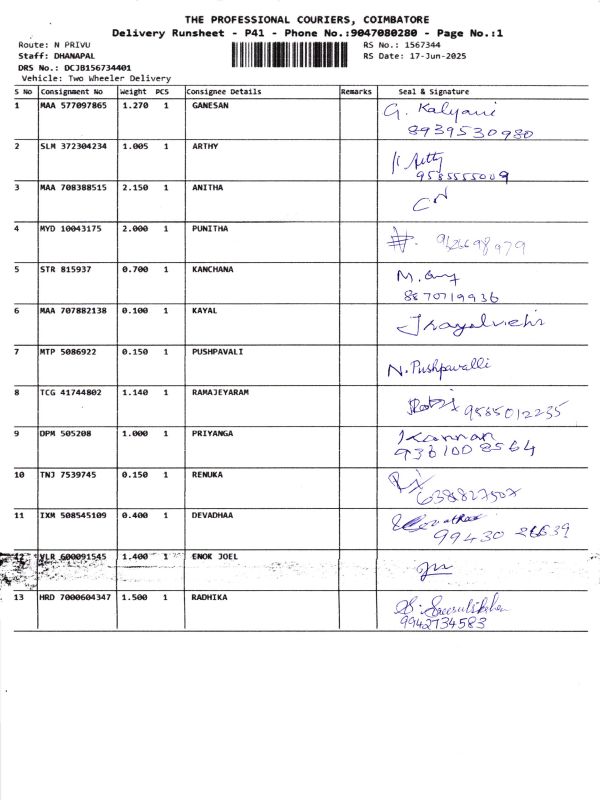 THE PROFESSIONAL COURIERS, COIMBATORE
Delivery Runsheet - P41 - Phone No.:9047080280 - Page No.:1
Route: N PRIVU RS No.: 1567344
Staff: DHANAPAL RS Date: 17-Jun-2025
DRS No.: DCJB156734401
Vehicle: Two Wheeler Delivery
S No Consignment No Weight PCS Consignee Details Remarks Seal & Signature
1 MAA 577097865 1.270 1 GANESAN G. Kalyani
8939530980
2 SLM 372304234 1.005 1 ARTHY
9585555009
3 MAA 708388515 2.150 1 ANITHA
4 MYD 10043175 2.000 1 PUNITHA
5 STR 815937 0.700 1 KANCHANA M.
8870719936
6 MAA 707882138 0.100 1 KAYAL
7 MTP 5086922 0.150 1 PUSHPAVALI N. Pushpavalli
8 TCG 41744802 1.140 1 RAMAJEYARAM 9585012235
9 DPM 505208 1.000 1 PRIYANGA Kannan
9361008564
10 TNJ 7539745 0.150 1 RENUKA
11 IXM 508545109 0.400 1 DEVADHAA
99430
12 VLR 600091545 1.400 1 ENOK JOEL
13 HRD 7000604347 1.500 1 RADHIKA
9942734583